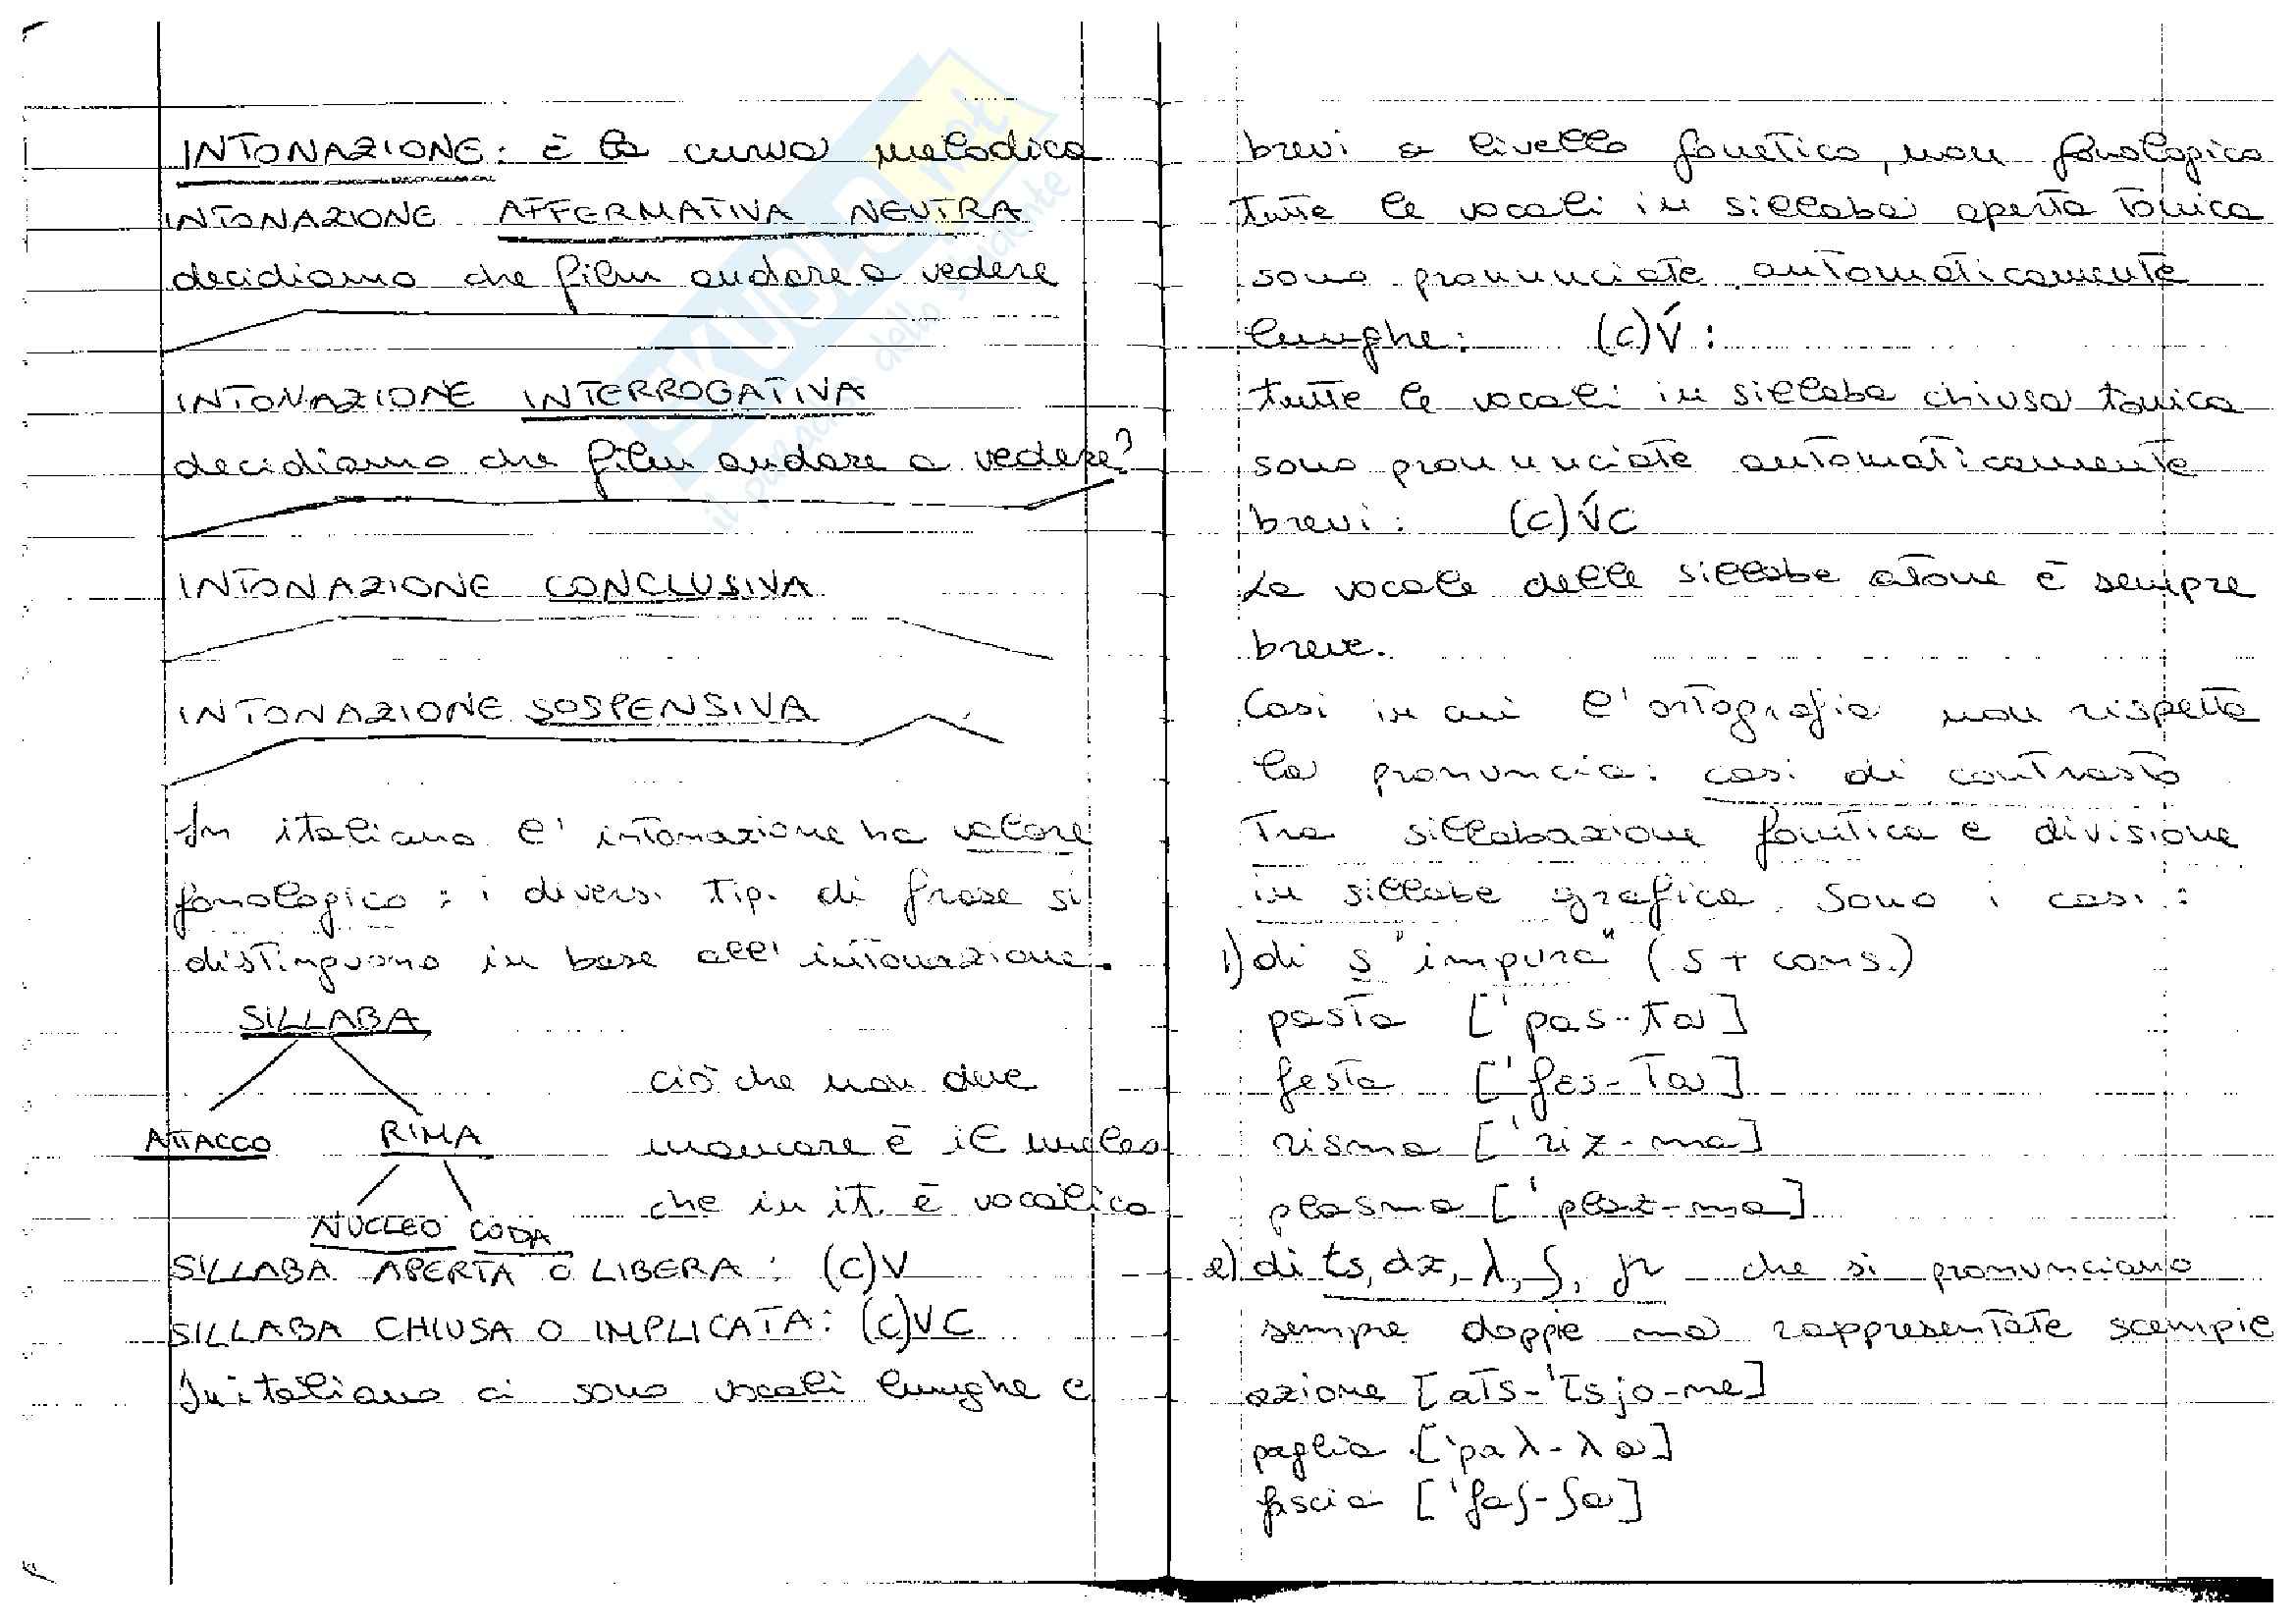 INTONAZIONE: è la curva melodica
INTONAZIONE AFFERMATIVA NEUTRA
decidiamo che film andare a vedere
INTONAZIONE INTERROGATIVA
decidiamo che film andare a vedere?
INTONAZIONE CONCLUSIVA
INTONAZIONE SOSPENSIVA
In italiano l'intonazione ha valore
fonologico: i diversi tipi di frase si
distinguono in base all'intonazione.
SILLABA
ciò che non deve
ATTACCO RIMA mancare è il nucleo
che in it. è vocalico
NUCLEO CODA
SILLABA APERTA O LIBERA: (C)V
SILLABA CHIUSA O IMPLICATA: (C)VC
In italiano ci sono vocali lunghe e
brevi a livello fonetico, non fonologico
tutte le vocali in sillaba aperta tonica
sono pronunciate automaticamente
lunghe: (C)V́:
tutte le vocali in sillaba chiusa tonica
sono pronunciate automaticamente
brevi: (C)V́C
La vocale delle sillabe atone è sempre
breve.
Casi in cui l'ortografia non rispetta
la pronuncia: casi di contrasto
tra sillabazione fonetica e divisione
in sillabe grafica. Sono i casi:
1) di s "impura" (s + cons.)
pasta ['pas-ta]
festa ['fes-ta]
risma ['riz-ma]
plasma ['plaz-ma]
2) di ts, dz, λ, ʃ, ɲ che si pronunciano
sempre doppie ma rappresentate scempie
azione [ats-'tsjo-ne]
paglia ['paλ-λa]
fascia ['faʃ-ʃa]
SKUOLA.net
il paradiso dello studente